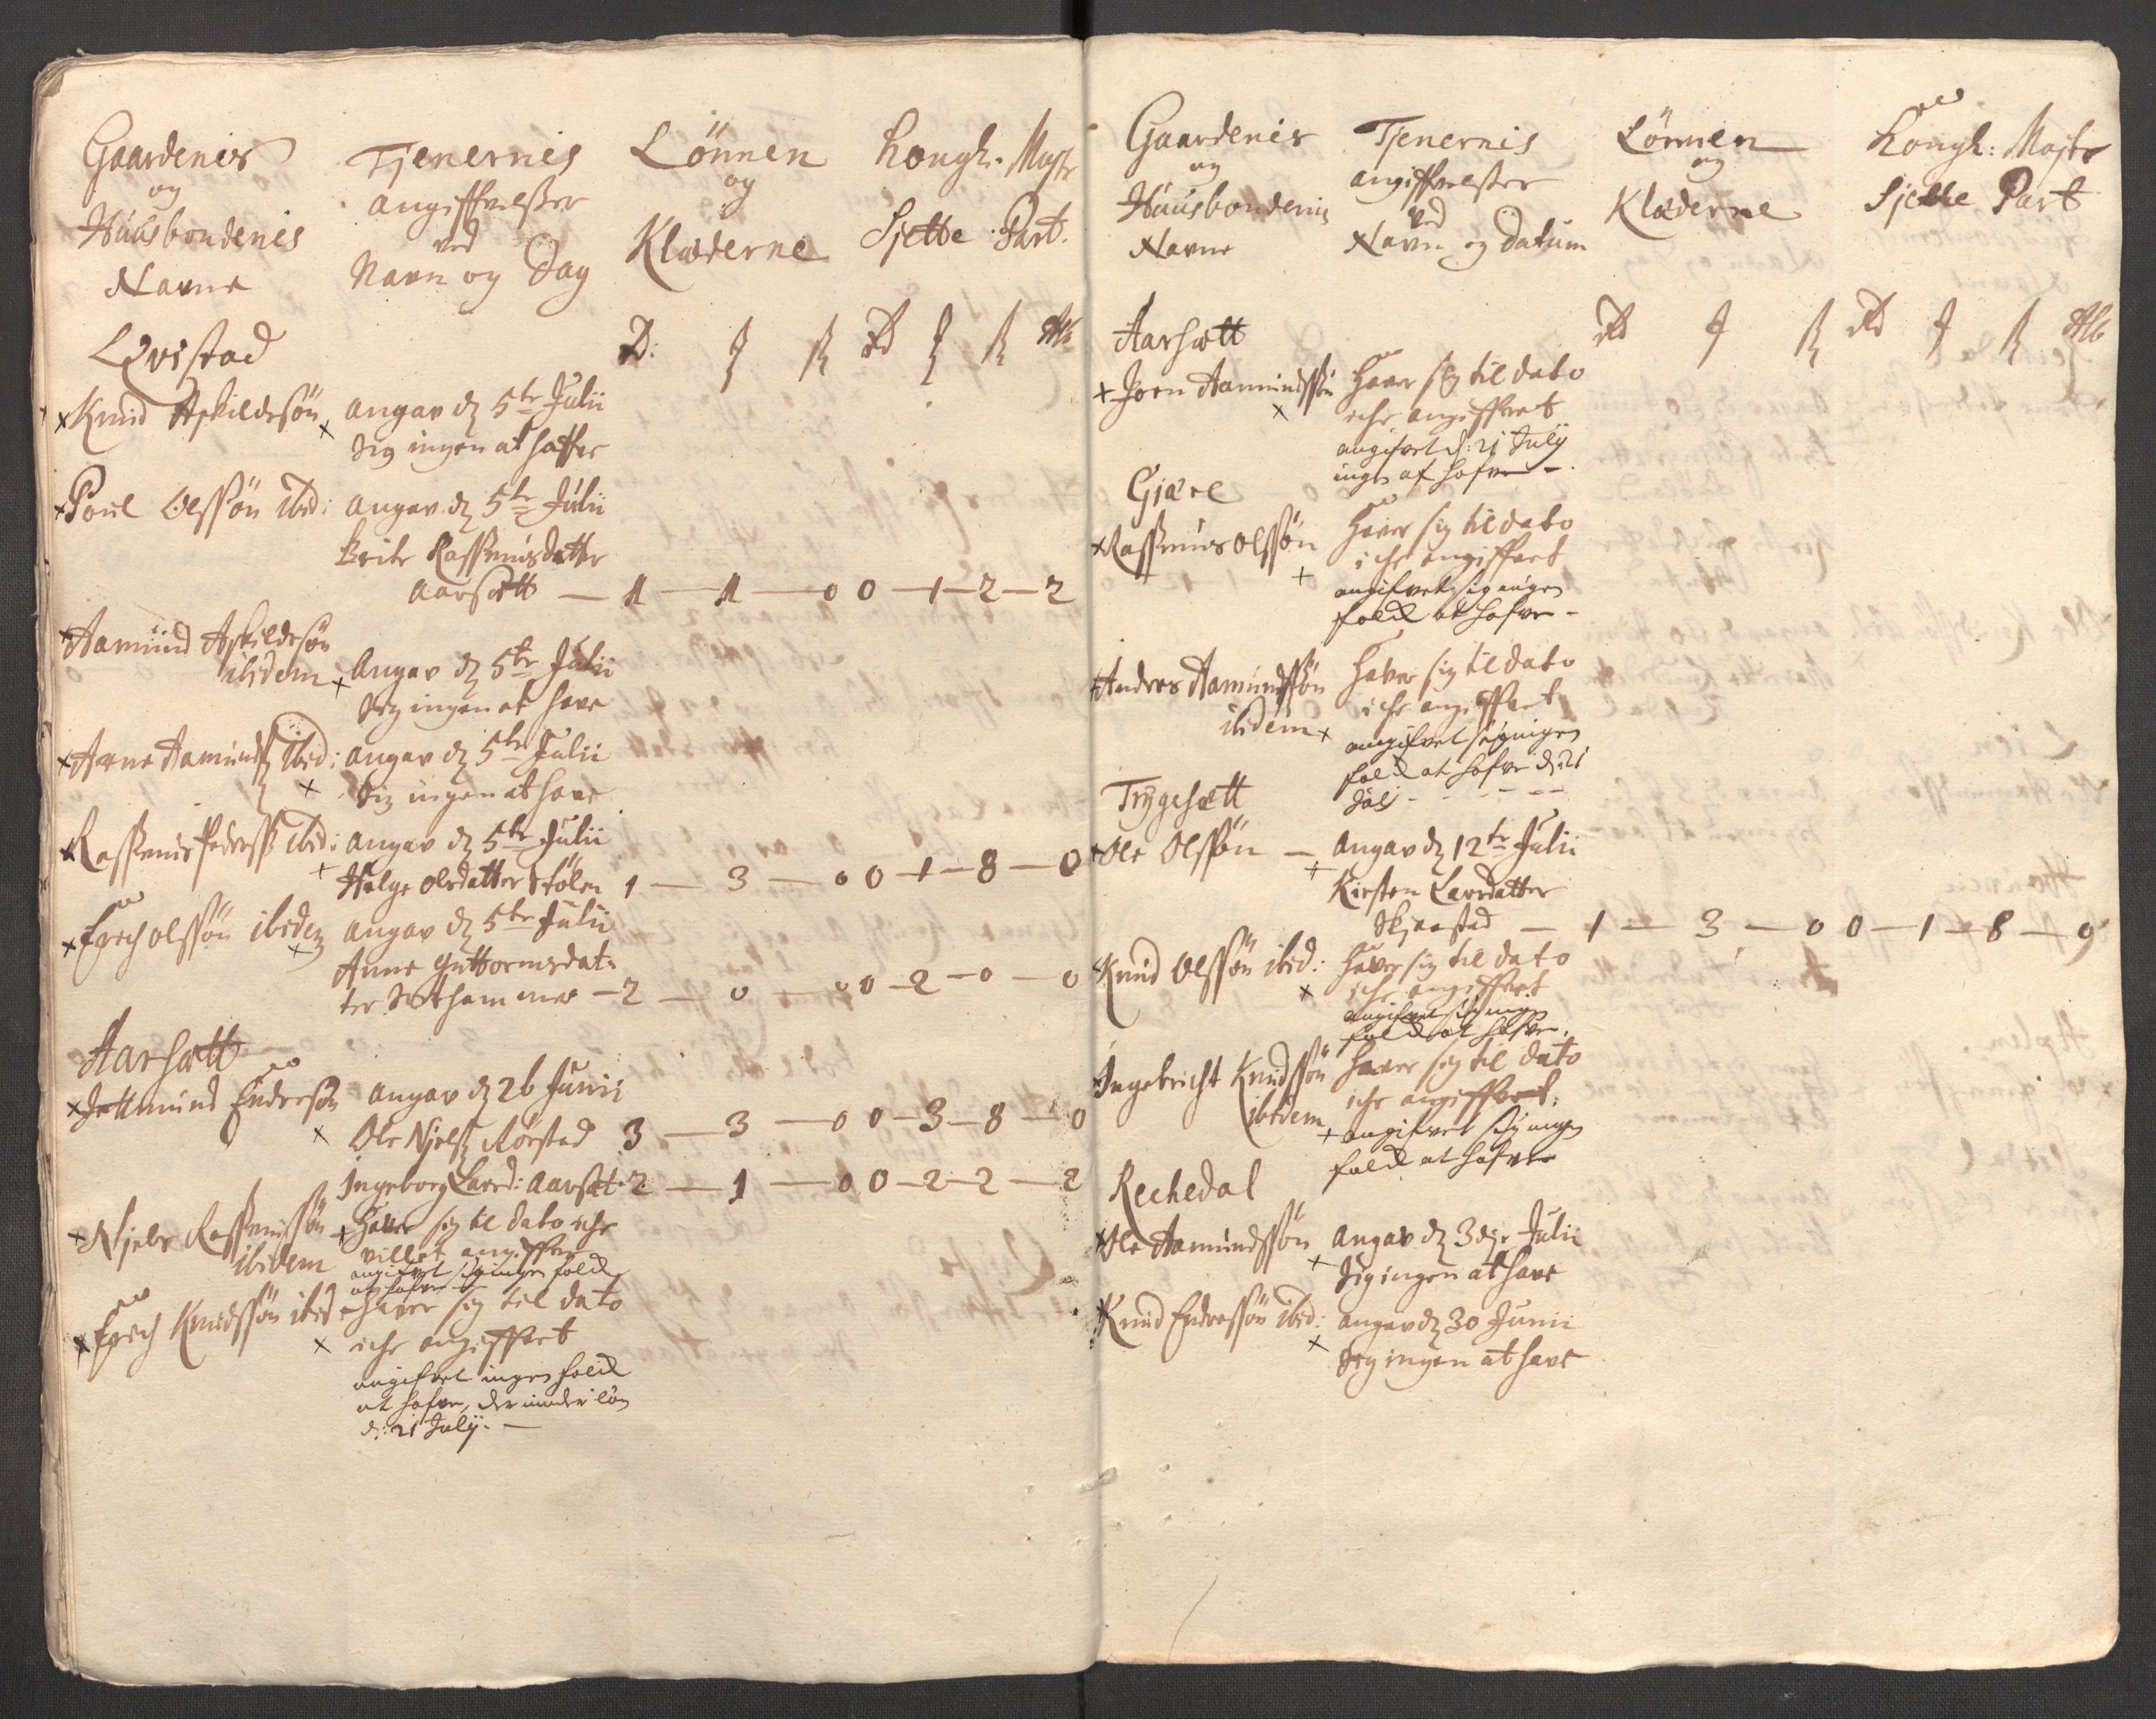 Gaardenis
og
Huusbondenis
Navne
Tjenernis
angiffvelßer
ved
Navn og Dag
Lönnen
og
Klæderne
Kongl. Majts
Sjette Part.
Qvistad
Knud Askildsön
angav d 5te Julii
Sig ingen at haffve
Poul Olssön ibid:
angav d 5te Julii
Brite Rassmusdatter
Aarsætt — 1 — 1 — 0 0 — 1 — 2 — 2
Aamund Askildsön
ibidem
Angav d 5te Julii
Sig ingen at have
Arne Aamunds ibid:
angav d 5te Julii
Sig ingen at have
Rassmus Pederss ibid:
angav d 5te Julii
Helge Olsdatter Stölen 1 — 3 — 0 0 — 1 — 8 — 0
Erich Olssön ibidem
angav d 5te Julii
Anne Guttormsdat-
ter — 2 — 0 — 0 0 — 2 — 0 — 0
Aarsætt
Jettmund Endresön
angav d 26 Junii
Ole Njels Rörstad 3 — 3 — 0 0 — 3 — 8 — 0
Ingeborg Larsd: Aarsæt 2 — 1 — 0 0 — 2 — 2 — 2
Njels Rassmussön
ibidem
Haver sig til dato iche
villet angiffve
angifvet sig ingen folck
at hafve
Erich Knudssön ibid
Haver sig til dato
iche angiffvet
angifvet ingen folck
at hafve, der under lön
d: 21 Julij. —
Gaardenis
og
Huusbondenis
Navne
Tjenernis
angiffvelßer
ved
Navn og Datum
Lönnen
og
Klæderne
Kongl: Majts
Sjette Part
Aarsætt
Joen Aamundssön
Haver sig til dato
iche angiffvet
angifvet d: 21 Julij
ingen at hafve —
Gjære
Rassmus Olssön
Haver sig til dato
iche angiffvet
angifvet sig ingen
folck at hafve —
Andres Aamundssön
ibidem
Haver sig til dato
iche angiffvet
angifvet sig ingen
folck at hafve d: 21
Julij
Trygesætt
Ole Olssön —
Angav d 12te Julii
Kirsten Larsdatter
Skjaastad — 1 — 3 — 0 0 — 1 — 8 — 0
Knud Olssön ibid:
Haver sig til dato
iche angiffvet
angifvet sig ingen
folck at hafve.
Ingebricht Knudssön
ibidem
Haver sig til dato
iche angiffvet.
angifvet sig ingen
folck at hafve
Rechedal
Ole Aamundssön
Angav d 3die Julii
Sig ingen at have
Knud Endressön ibid:
angav d 30 Junii
Sig ingen at have